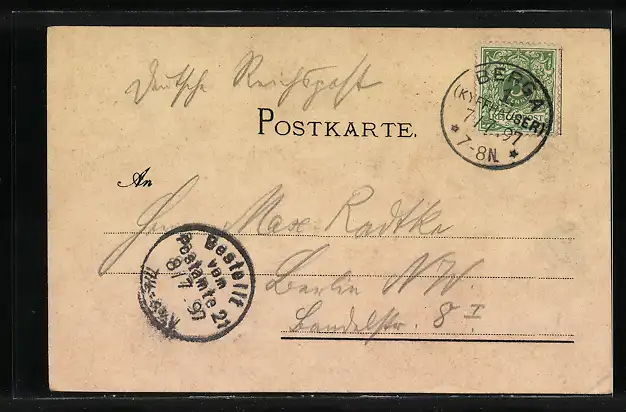 Deutsche Reichspost
POSTKARTE.
BERGA
(KYFFHÄUSER)
7.7.97
7-8N.
An
Herrn Max Radtke
Berlin N.W.
Bandelstr. 8 I
Bestellt
vom
Postamte 21
8/7 97